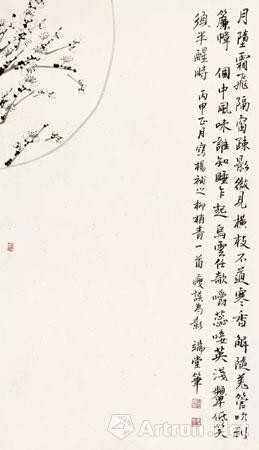 月墮霜飛隔窗疎影微見橫枝不道寒香解隨羌管吹到
簾幃 個中風味誰知睡乍起烏雲任欹嚼蕊挼英淺顰低笑
須半醒時 丙申正月寫楊補之柳梢青一首瘦談為影 端堂筆
Artron.net